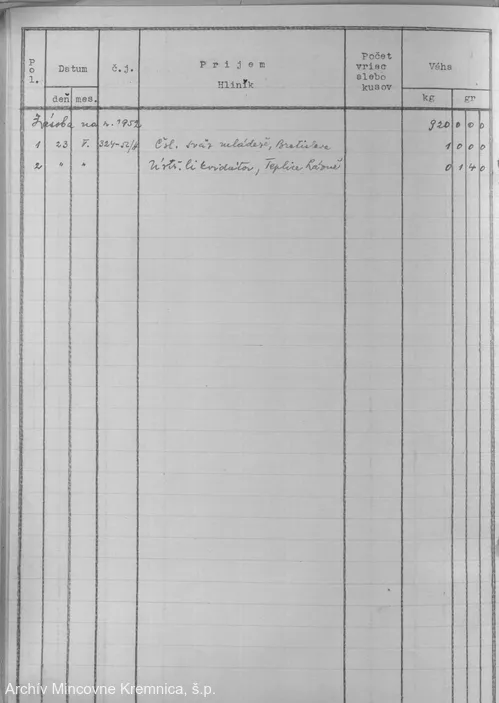 Pol. Datum č.j. Príjem Hliník Počet vriac alebo kusov Váha
deň mes. kg gr
Zásoba na r. 1952 920 0 0 0
1 23 V. 324-52/ Čsl. sväz mládeže, Bratislava 1 0 0 0
2 " " Ústř. likvidátor, Teplice Lázně 0 1 4 0
Archív Mincovne Kremnica, š.p.